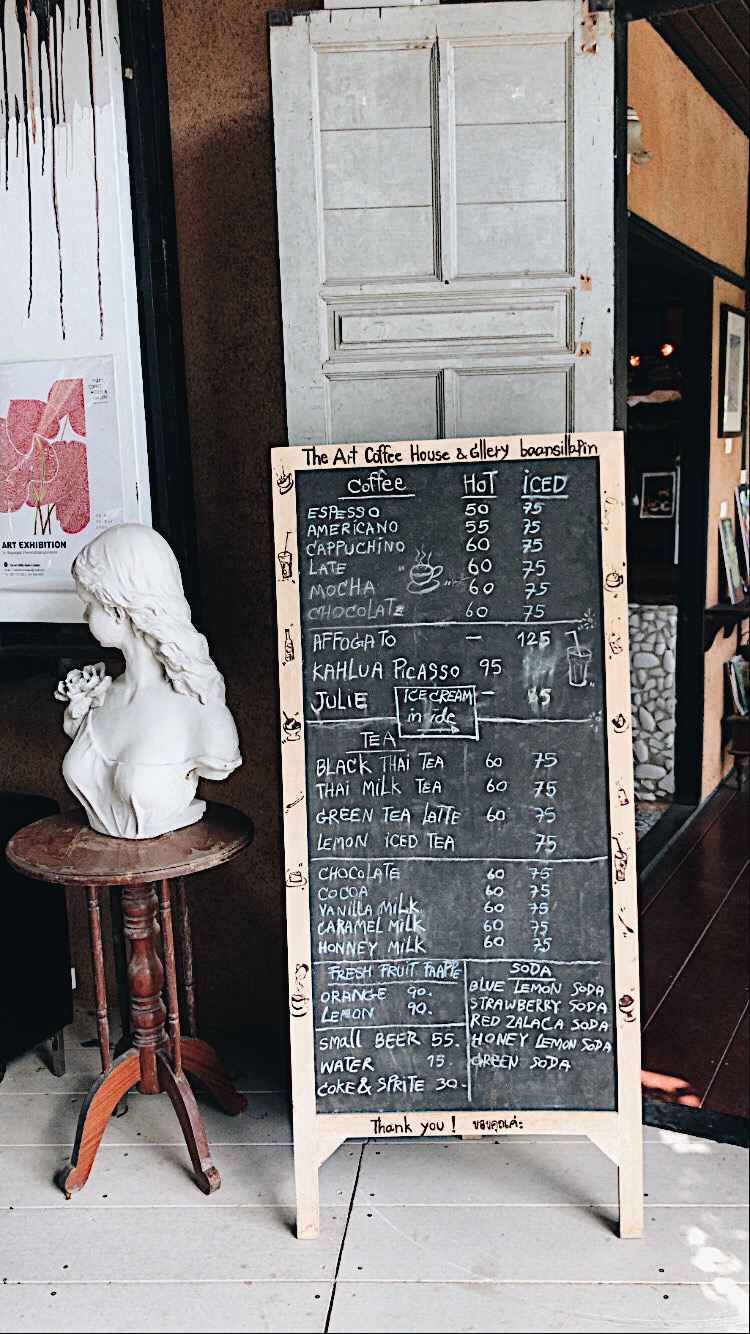 ART EXHIBITION
The Art Coffee House & Gllery baansillapin
Coffee HOT ICED
ESPESSO 50 75
AMERICANO 55 75
CAPPUCHINO 60 75
LATE 60 75
MOCHA 60 75
CHOCOLATE 60 75
AFFOGATO - 125
KAHLUA PICASSO 95
JULIE -
ICE CREAM
TEA
BLACK THAI TEA 60 75
THAI MILK TEA 60 75
GREEN TEA LATTE 60 75
LEMON ICED TEA 75
CHOCOLATE 60 75
COCOA 60 75
VANILLA MILK 60 75
CARAMEL MILK 60 75
HONNEY MILK 60 75
FRESH FRUIT FRAPPE
ORANGE 90.
LEMON 90.
SMALL BEER 55.
WATER 15.
COKE & SPRITE 30.-
SODA
BLUE LEMON SODA
STRAWBERRY SODA
RED ZALACA SODA
HONEY LEMON SODA
GREEN SODA
Thank you ! ขอบคุณค่ะ